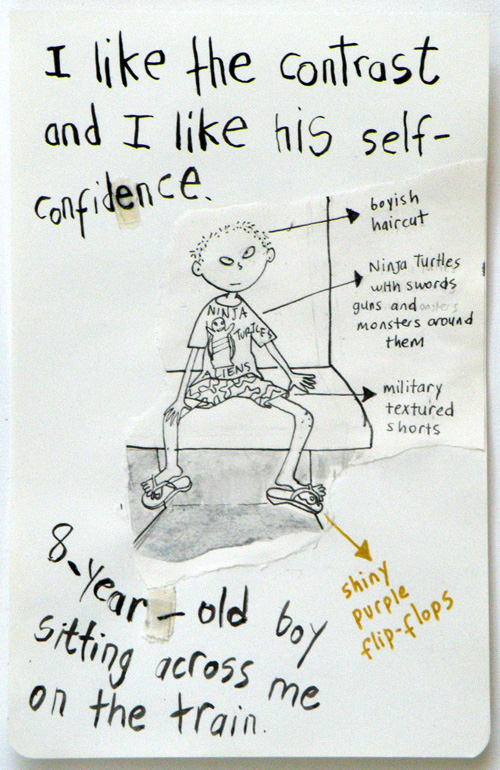 I like the contrast
and I like his self-
confidence.
boyish
haircut
Ninja Turtles
with swords
guns and
monsters around
them
NINJA
TURTLES
ALIENS
military
textured
shorts
shiny
purple
flip-flops
8-year-old boy
sitting across me
on the train.